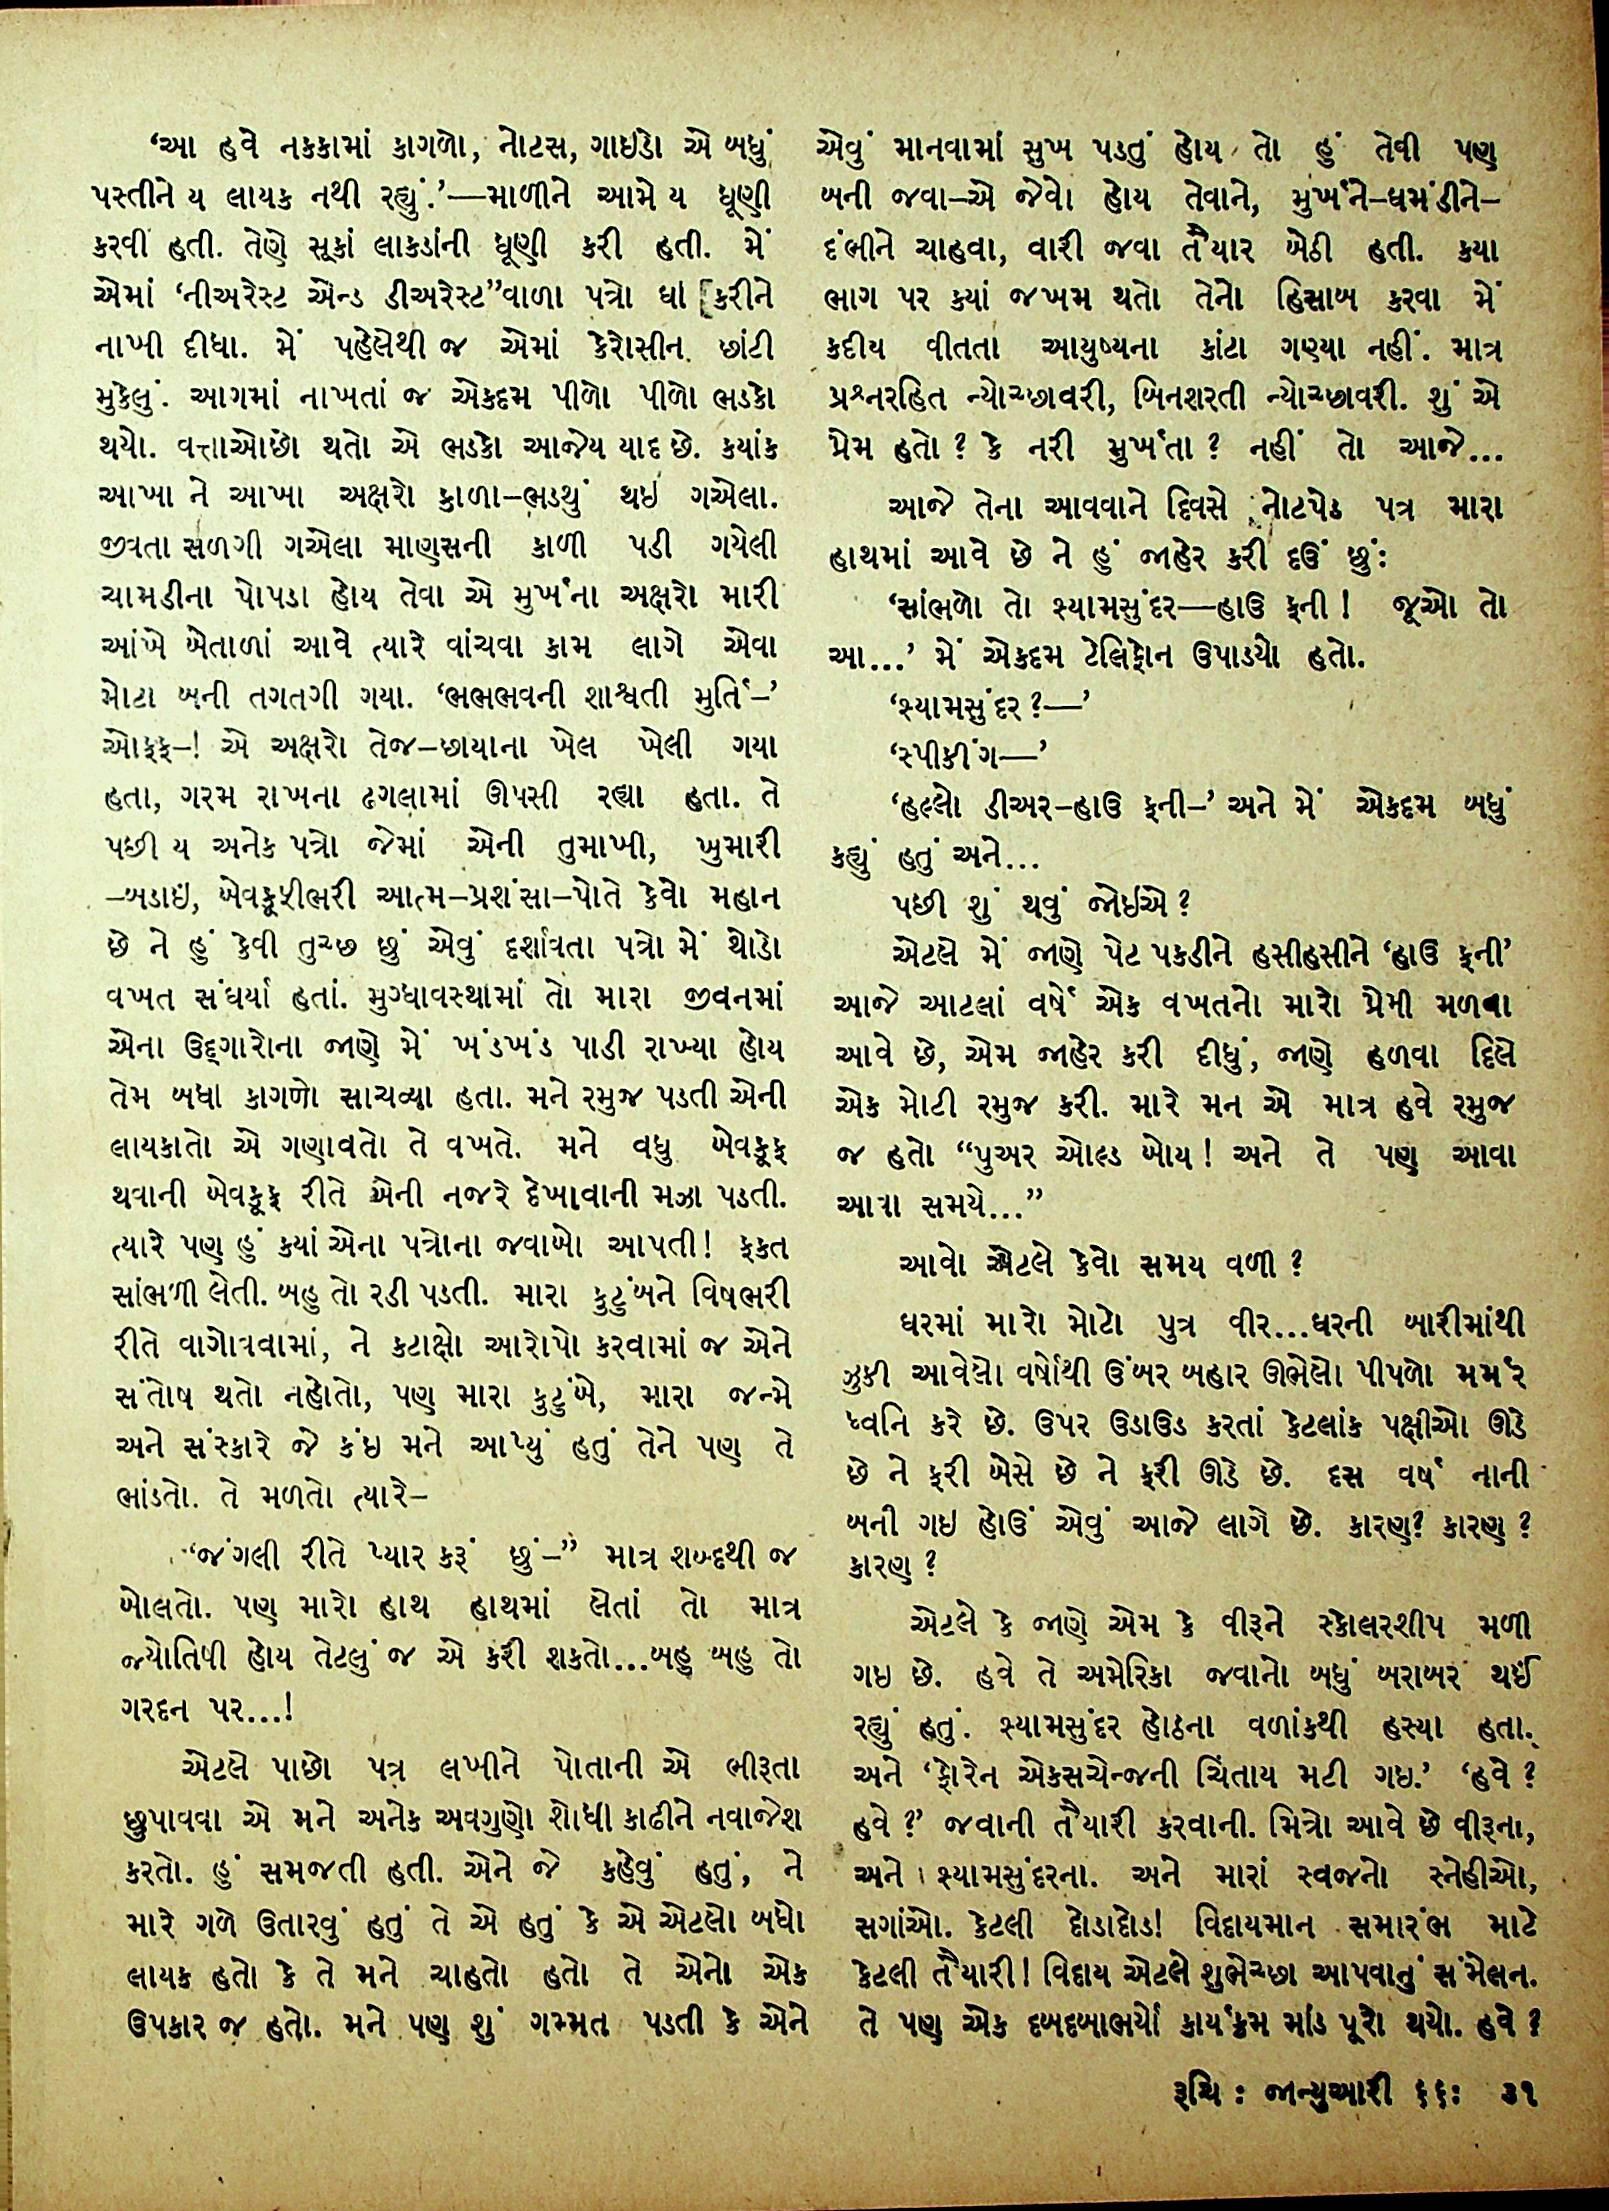 ‘આ હવે નકકામાં કાગળો, નોટસ, ગાઇડો એ બધું
પસ્તીને ય લાયક નથી રહ્યું.’—માળીને આમે ય ધૂણી
કરવી હતી. તેણે સૂકાં લાકડાંની ધૂણી કરી હતી. મેં
એમાં ‘નીઅરેસ્ટ એન્ડ ડીઅરેસ્ટ”વાળા પત્રો ઘા કરીને
નાખી દીધા. મેં પહેલેથી જ એમાં કેરોસીન છાંટી
મુકેલું. આગમાં નાખતાં જ એકદમ પીળો પીળો ભડકો
થયો. વત્તાઓછો થતો એ ભડકો આજેય યાદ છે. કયાંક
આખા ને આખા અક્ષરો કાળા–ભડથું થઇ ગએલા.
જીવતા સળગી ગએલા માણસની કાળી પડી ગયેલી
ચામડીના પોપડા હોય તેવા એ મુર્ખના અક્ષરો મારી
આંખે બેતાળાં આવે ત્યારે વાંચવા કામ લાગે એવા
મોટા બની તગતગી ગયા. ‘ભભભવની શાશ્વતી મુર્તિ–’
ઓફફ–! એ અક્ષરો તેજ–છાયાના ખેલ ખેલી ગયા
હતા, ગરમ રાખના ઢગલામાં ઊપસી રહ્યા હતા. તે
પછી ય અનેક પત્રો જેમાં એની તુમાખી, ખુમારી
–બડાઇ, બેવકૂફીભરી આત્મ–પ્રશંસા–પોતે કેવો મહાન
છે ને હું કેવી તુચ્છ છું એવું દર્શાવતા પત્રો મેં થોડો
વખત સંઘર્યા હતાં. મુગ્ધાવસ્થામાં તો મારા જીવનમાં
એના ઉદ્ગારોના જાણે મેં ખંડખંડ પાડી રાખ્યા હોય
તેમ બધા કાગળો સાચવ્યા હતા. મને રમુજ પડતી એની
લાયકાતો એ ગણાવતો તે વખતે. મને વધુ બેવકૂફ
થવાની બેવકૂફ રીતે એની નજરે દેખાવાની મઝા પડતી.
ત્યારે પણ હું કયાં એના પત્રોના જવાબો આપતી! ફકત
સાંભળી લેતી. બહુ તો રડી પડતી. મારા કુટુંબને વિષભરી
રીતે વાગોવવામાં, ને કટાક્ષો આરોપો કરવામાં જ એને
સંતોષ થતો નહોતો, પણ મારા કુટુંબે, મારા જન્મે
અને સંસ્કારે જે કંઇ મને આપ્યું હતું તેને પણ તે
ભાંડતો. તે મળતો ત્યારે–
“જંગલી રીતે પ્યાર કરૂં છું–” માત્ર શબ્દથી જ
બોલતો. પણ મારો હાથ હાથમાં લેતાં તો માત્ર
જ્યોતિષી હોય તેટલું જ એ કરી શકતો...બહુ બહુ તો
ગરદન પર...!
એટલે પાછો પત્ર લખીને પોતાની એ ભીરૂતા
છુપાવવા એ મને અનેક અવગુણો શોધી કાઢીને નવાજેશ
કરતો. હું સમજતી હતી. એને જે કહેવું હતું, ને
મારે ગળે ઉતારવું હતું તે એ હતું કે એ એટલો બધો
લાયક હતો કે તે મને ચાહતો હતો તે એનો એક
ઉપકાર જ હતો. મને પણ શું ગમ્મત પડતી કે એને
એવું માનવામાં સુખ પડતું હોય તો હું તેવી પણ
બની જવા–એ જેવો હોય તેવાને, મુર્ખને–ઘમંડીને–
દંભીને ચાહવા, વારી જવા તૈયાર બેઠી હતી. કયા
ભાગ પર કયાં જખમ થતો તેનો હિસાબ કરવા મેં
કદીય વીતતા આયુષ્યના કાંટા ગણ્યા નહીં. માત્ર
પ્રશ્નરહિત ન્યોચ્છાવરી, બિનશરતી ન્યોચ્છાવરી. શું એ
પ્રેમ હતો? કે નરી મુર્ખતા? નહીં તો આજે...
આજે તેના આવવાને દિવસે નોટપેડ પત્ર મારા
હાથમાં આવે છે ને હું જાહેર કરી દઉં છું:
‘સાંભળો તો શ્યામસુંદર—હાઉ ફની! જૂઓ તો
આ...’ મેં એકદમ ટેલિફોન ઉપાડયો હતો.
‘શ્યામસુંદર?—’
‘સ્પીકીંગ—’
‘હલ્લો ડીઅર–હાઉ ફની–’ અને મેં એકદમ બધું
કહ્યું હતું અને...
પછી શું થવું જોઇએ?
એટલે મેં જાણે પેટ પકડીને હસીહસીને ‘હાઉ ફની’
આજે આટલાં વર્ષે એક વખતનો મારો પ્રેમી મળવા
આવે છે, એમ જાહેર કરી દીધું, જાણે હળવા દિલે
એક મોટી રમુજ કરી. મારે મન એ માત્ર હવે રમુજ
જ હતો “પુઅર ઓલ્ડ બોય! અને તે પણ આવા
આવા સમયે...”
આવો એટલે કેવો સમય વળી?
ઘરમાં મારો મોટો પુત્ર વીર...ઘરની બારીમાંથી
ઝુકી આવેલો વર્ષોથી ઉંબર બહાર ઊભેલો પીપળો મર્મર
ધ્વનિ કરે છે. ઉપર ઉડાઉડ કરતાં કેટલાંક પક્ષીઓ ઊડે
છે ને ફરી બેસે છે ને ફરી ઊડે છે. દસ વર્ષ નાની
બની ગઇ હોઉં એવું આજે લાગે છે. કારણ? કારણ?
કારણ?
એટલે કે જાણે એમ કે વીરૂને સ્કોલરશીપ મળી
ગઇ છે. હવે તે અમેરિકા જવાનો બધું બરાબર થઈ
રહ્યું હતું. શ્યામસુંદર હોઠના વળાંકથી હસ્યા હતા.
અને ‘ફોરેન એકસચેન્જની ચિંતાય મટી ગઇ.’ ‘હવે?
હવે?’ જવાની તૈયારી કરવાની. મિત્રો આવે છે વીરૂના,
અને શ્યામસુંદરના. અને મારાં સ્વજનો સ્નેહીઓ,
સગાંઓ. કેટલી દોડાદોડ! વિદાયમાન સમારંભ માટે
કેટલી તૈયારી! વિદાય એટલે શુભેચ્છા આપવાનું સંમેલન.
તે પણ એક દબદબાભર્યો કાર્યક્રમ માંડ પૂરો થયો. હવે?
રૂચિ : જાન્યુઆરી ૬૬: ૩૧